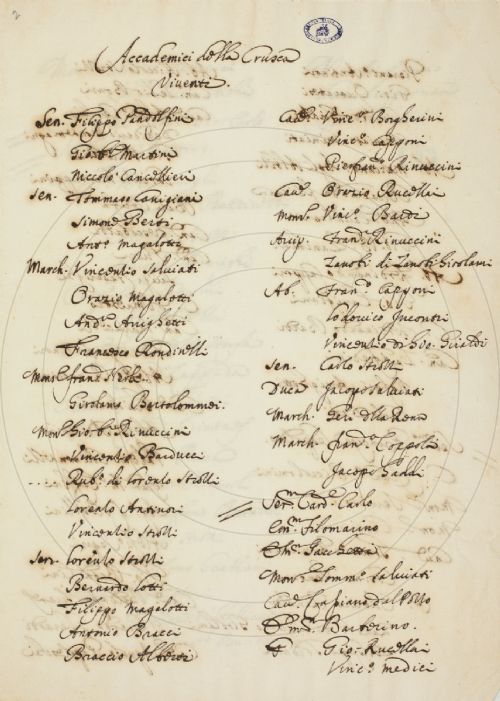 2
Accademici della Crusca
Viventi.
Sen. Filippo Pandolfini
Gio: Bat.ª Martini
Niccolò Cancellieri
Sen. Tommaso Canigiani
Simone Berti
Ant.º Magalotti
March. Vincentio Salviati
Orazio Magalotti
And.ª Arrighetti
Francesco Rondinelli
Mons.
Girolamo Bartolommei.
Mons. Rinuccini
Vincentio Barducci
Rub.º di Lorenzo Strozzi
Lorenzo Antinori
Vincentio Strozzi
Sen. Lorenzo Strozzi
Bernardo Lotti
Filippo Magalotti
Antonio Bracci
Braccio Alberti
Cav. Vinc.º Borgherini
Vinc.º Capponi
Pierfran.º Rinuccini
Cav. Orazio Rucellai
Mons. Vinc.º Bardi
Arcip. Fran.º Rinuccini
Zanobi di Zanobi Girolami
Ab. Fran.º Capponi
Lodovico Incontri
Vincentio di Gio. Giraldi
Sen. Carlo Strozzi
Duca Jacopo Salviati
March. Geri della Rena
March. Fran.º Coppola
Jacopo Gaddi
Ser.ᵐ Card. Carlo
Filomarino
Mons.ʳ Tomm.º Salviati
Cav. Cassiano dal Pozzo
Barberino.
Gio. Rucellai
Vinc.º Medici